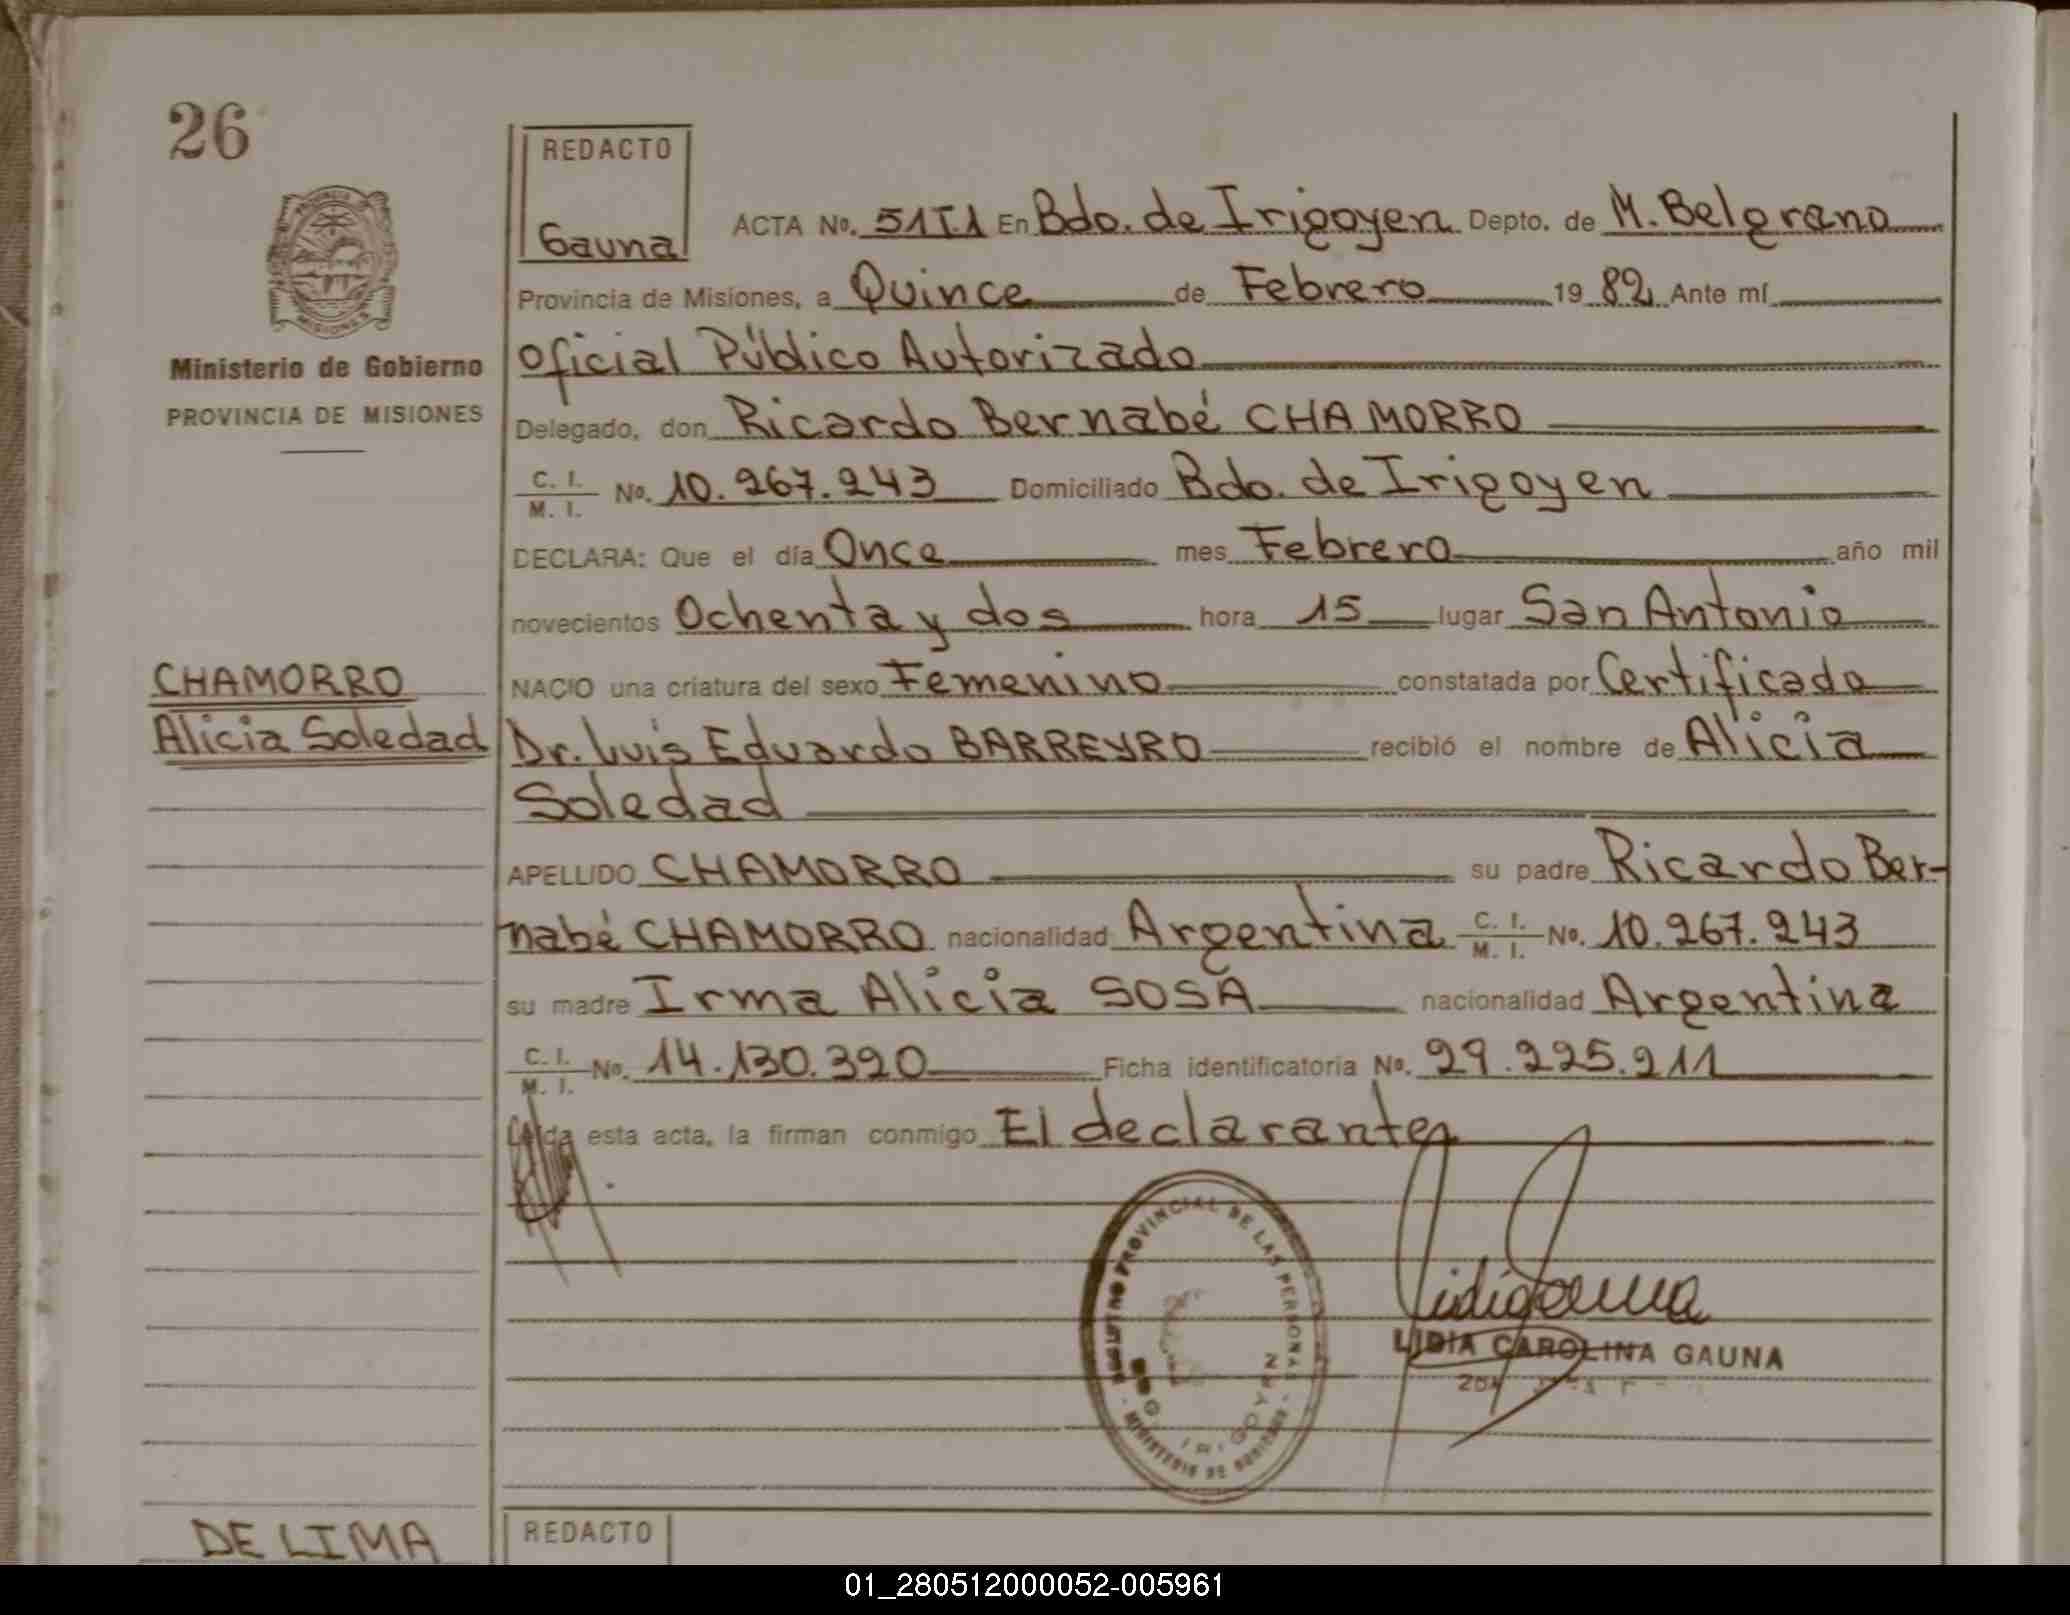 26
PROVINCIA
MISIONES
Ministerio de Gobierno
PROVINCIA DE MISIONES
CHAMORRO
Alicia Soledad
REDACTO
Gauna
ACTA No. 51T.1 En Bdo. de Irigoyen Depto. de M. Belgrano
Provincia de Misiones, a Quince de Febrero 19 82 Ante mí
Oficial Público Autorizado
Delegado, don Ricardo Bernabé CHAMORRO
C. I. / M. I. No. 10.267.243 Domiciliado Bdo. de Irigoyen
DECLARA: Que el día Once mes Febrero año mil
novecientos Ochenta y dos hora 15 lugar San Antonio
NACIO una criatura del sexo Femenino constatada por Certificado
Dr. Luis Eduardo BARREYRO recibió el nombre de Alicia
Soledad
APELLIDO CHAMORRO su padre Ricardo Ber-
nabé CHAMORRO nacionalidad Argentina C. I. / M. I. No. 10.267.243
su madre Irma Alicia SOSA nacionalidad Argentina
C. I. / M. I. No. 14.130.390 Ficha identificatoria No. 29.225.211
Leída esta acta, la firman conmigo El declarante
REGISTRO PROVINCIAL DE LAS PERSONAS
MINISTERIO DE GOBIERNO
IRIGOYEN
LIDIA CAROLINA GAUNA
DE LIMA
REDACTO
01_280512000052-005961